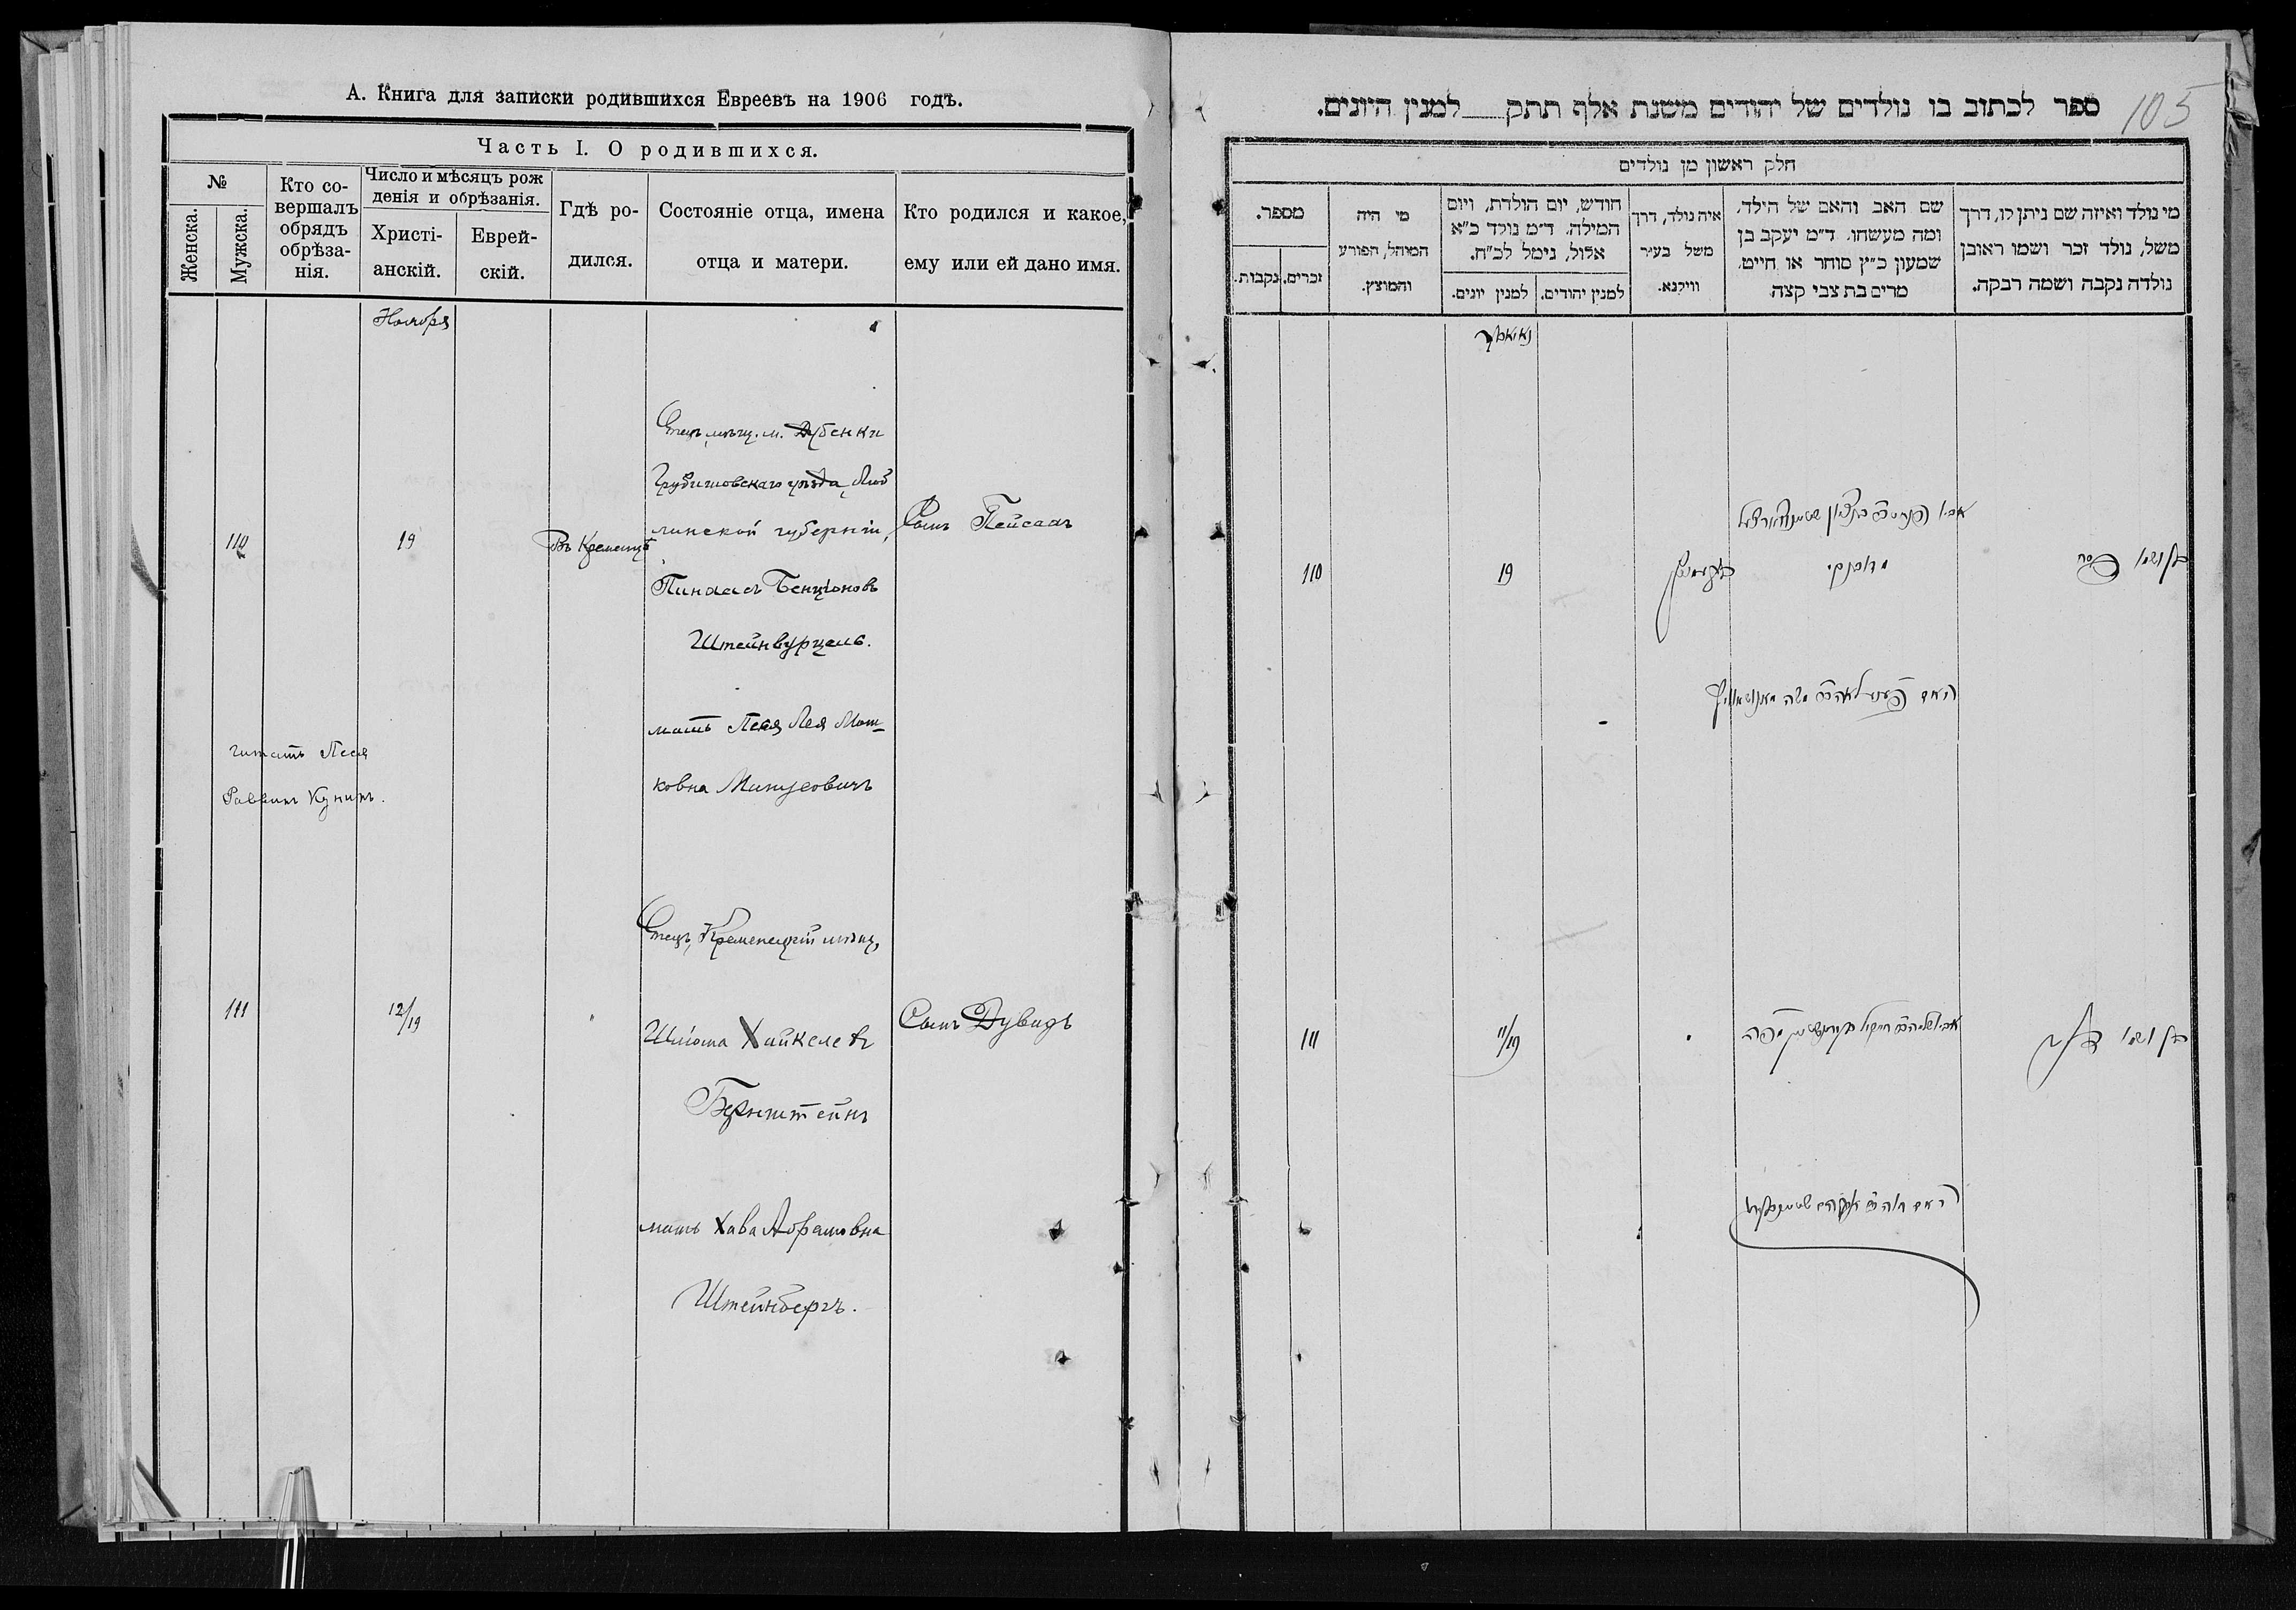 А. Книга для записки родившихся Евреевъ на 1906 годъ.
Часть I. О родившихся.
№
Женска.
Мужска.
Кто со-
вершалъ
обрядъ
обрѣза-
нія.
Число и мѣсяцъ рож
денія и обрѣзанія.
Христі-
анскій.
Еврей-
скій.
Гдѣ ро-
дился.
Состояніе отца, имена
отца и матери.
Кто родился и какое,
ему или ей дано имя.
Ноября
110
19
Въ Кременцѣ
Отецъ, мѣщ. м. Дубенки
Грубишовскаго уѣзда, Люб
линской губерніи,
Пинхасъ Бенціоновъ
Штейнвурцель.
мать Песя Лея Мош-
ковна Матусовичъ
Сынъ Пейсахъ
читать Песя
Раввинъ Кунинъ.
111
12/19
"
Отецъ, Кременецкій мѣщ,
Шлёма Хайкелевъ
Бернштейнъ
мать Хава Абрамовна
Штейнбергъ.
Сынъ Дувидъ
105
ספר לכתוב בו נולדים של יהודים משנת אלף תתק למנין היונים.
חלק ראשון מן נולדים
מי נולד ואיזה שם ניתן לו, דרך
משל, נולד זכר ושמו ראובן
נולדה נקבה ושמה רבקה.
שם האב והאם של הילד,
ומה מעשהו. ד"מ יעקב בן
שמעון כ"ץ סוחר או חייט,
מרים בת צבי קצה.
איה נולד, דרך
משל בעיר
ווילנא.
חודש, יום הולדת, ויום
המילה. ד"מ נולד כ"א
אלול, נימל לכ"ח.
למנין יהודים.
למנין יונים.
מי היה
המוהל, הפורע
והמוצץ.
מספר.
זכרים.
נקבות.
נאיאבר
110
19
בן ושמו פסח
111
11/19
בן ושמו דוד